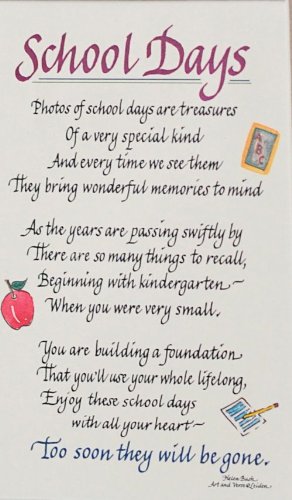 School Days
Photos of school days are treasures
Of a very special kind
And every time we see them
They bring wonderful memories to mind
ABC
As the years are passing swiftly by
There are so many things to recall,
Beginning with kindergarten~
When you were very small.
You are building a foundation
That you'll use your whole lifelong,
Enjoy these school days
with all your heart~
Too soon they will be gone.
Helen Bush
Art and Verse